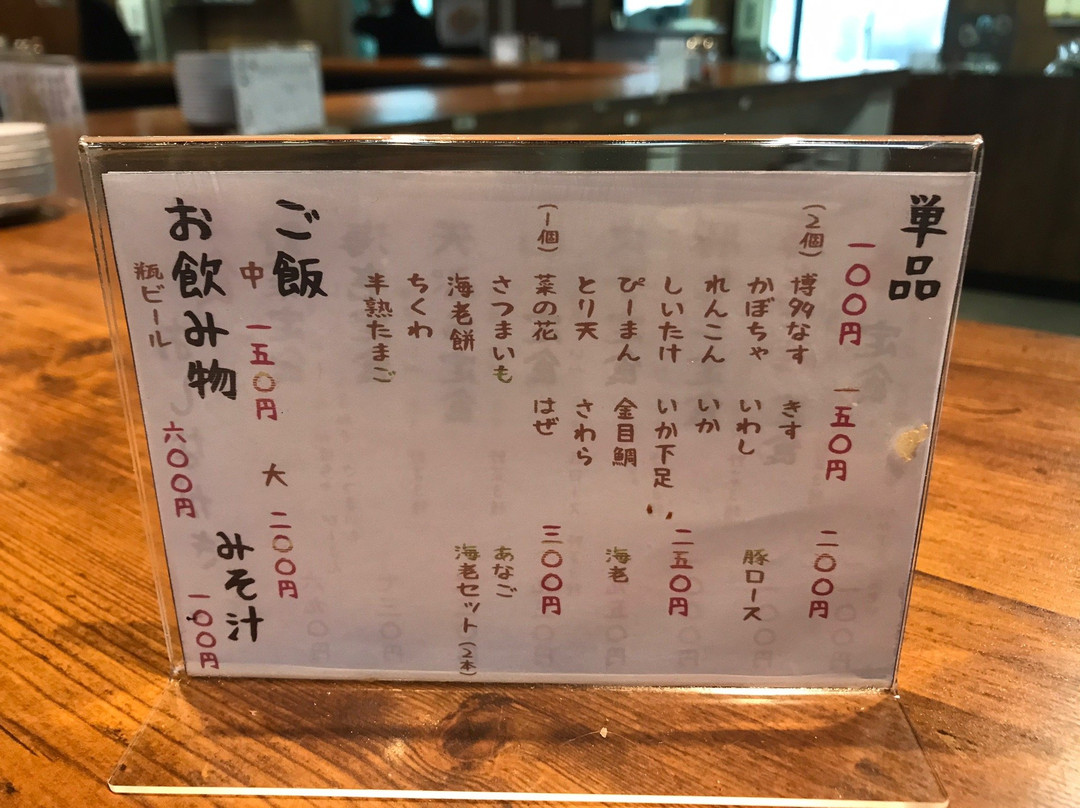 単品
一〇〇円
(2個)
博多なす
かぼちゃ
れんこん
しいたけ
ぴーまん
とり天
(1個)
菜の花
さつまいも
海老餅
ちくわ
半熟たまご
一五〇円
きす
いわし
いか
いか下足
金目鯛
さわら
はぜ
二〇〇円
豚ロース
二五〇円
海老
三〇〇円
あなご
海老セット(2本)
ご飯
中 一五〇円 大 二〇〇円
みそ汁
一〇〇円
お飲み物
瓶ビール 六〇〇円